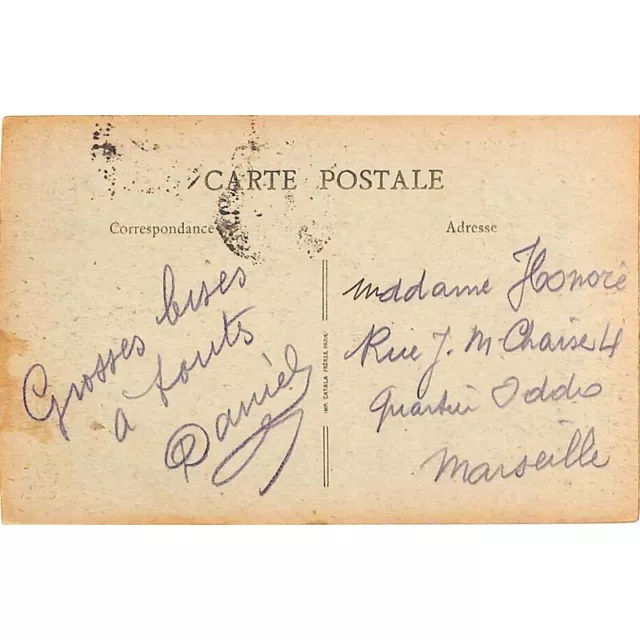 CARTE POSTALE
Correspondance
Adresse
Grosses bises
à touts
Daniel
IMP. CATALA FRÈRES, PARIS
Maddame Honoré
Rue J. M Chaise 4
Quartier Oddo
Marseille